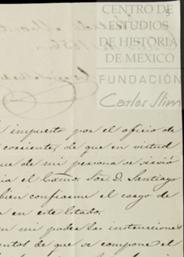 CENTRO DE
ESTUDIOS
DE HISTORIA
DE MÉXICO
FUNDACIÓN
Carlos Slim
impuesto por el oficio de
corriente, de que en virtud
que de mi persona se sirvió
el Exmo. Sor. D. Santiago
bien confiarme el cargo de
en este Estado.
en mi poder las intenciones
de que se compone el